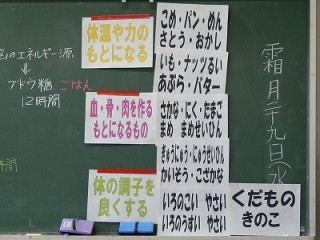 のエネルギー源
↓
ブドウ糖 ごはん
12時間
時間
体温や力の
もとになる
こめ・パン・めん
さとう・おかし
いも・ナッツるい
あぶら・バター
血・骨・肉を作る
もとになるもの
さかな・にく・たまご
まめ まめせいひん
ぎゅうにゅう・にゅうせいひん
かいそう・こざかな
体の調子を
良くする
いろのこい やさい
いろのうすい やさい
くだもの
きのこ
霜月二十九日(水